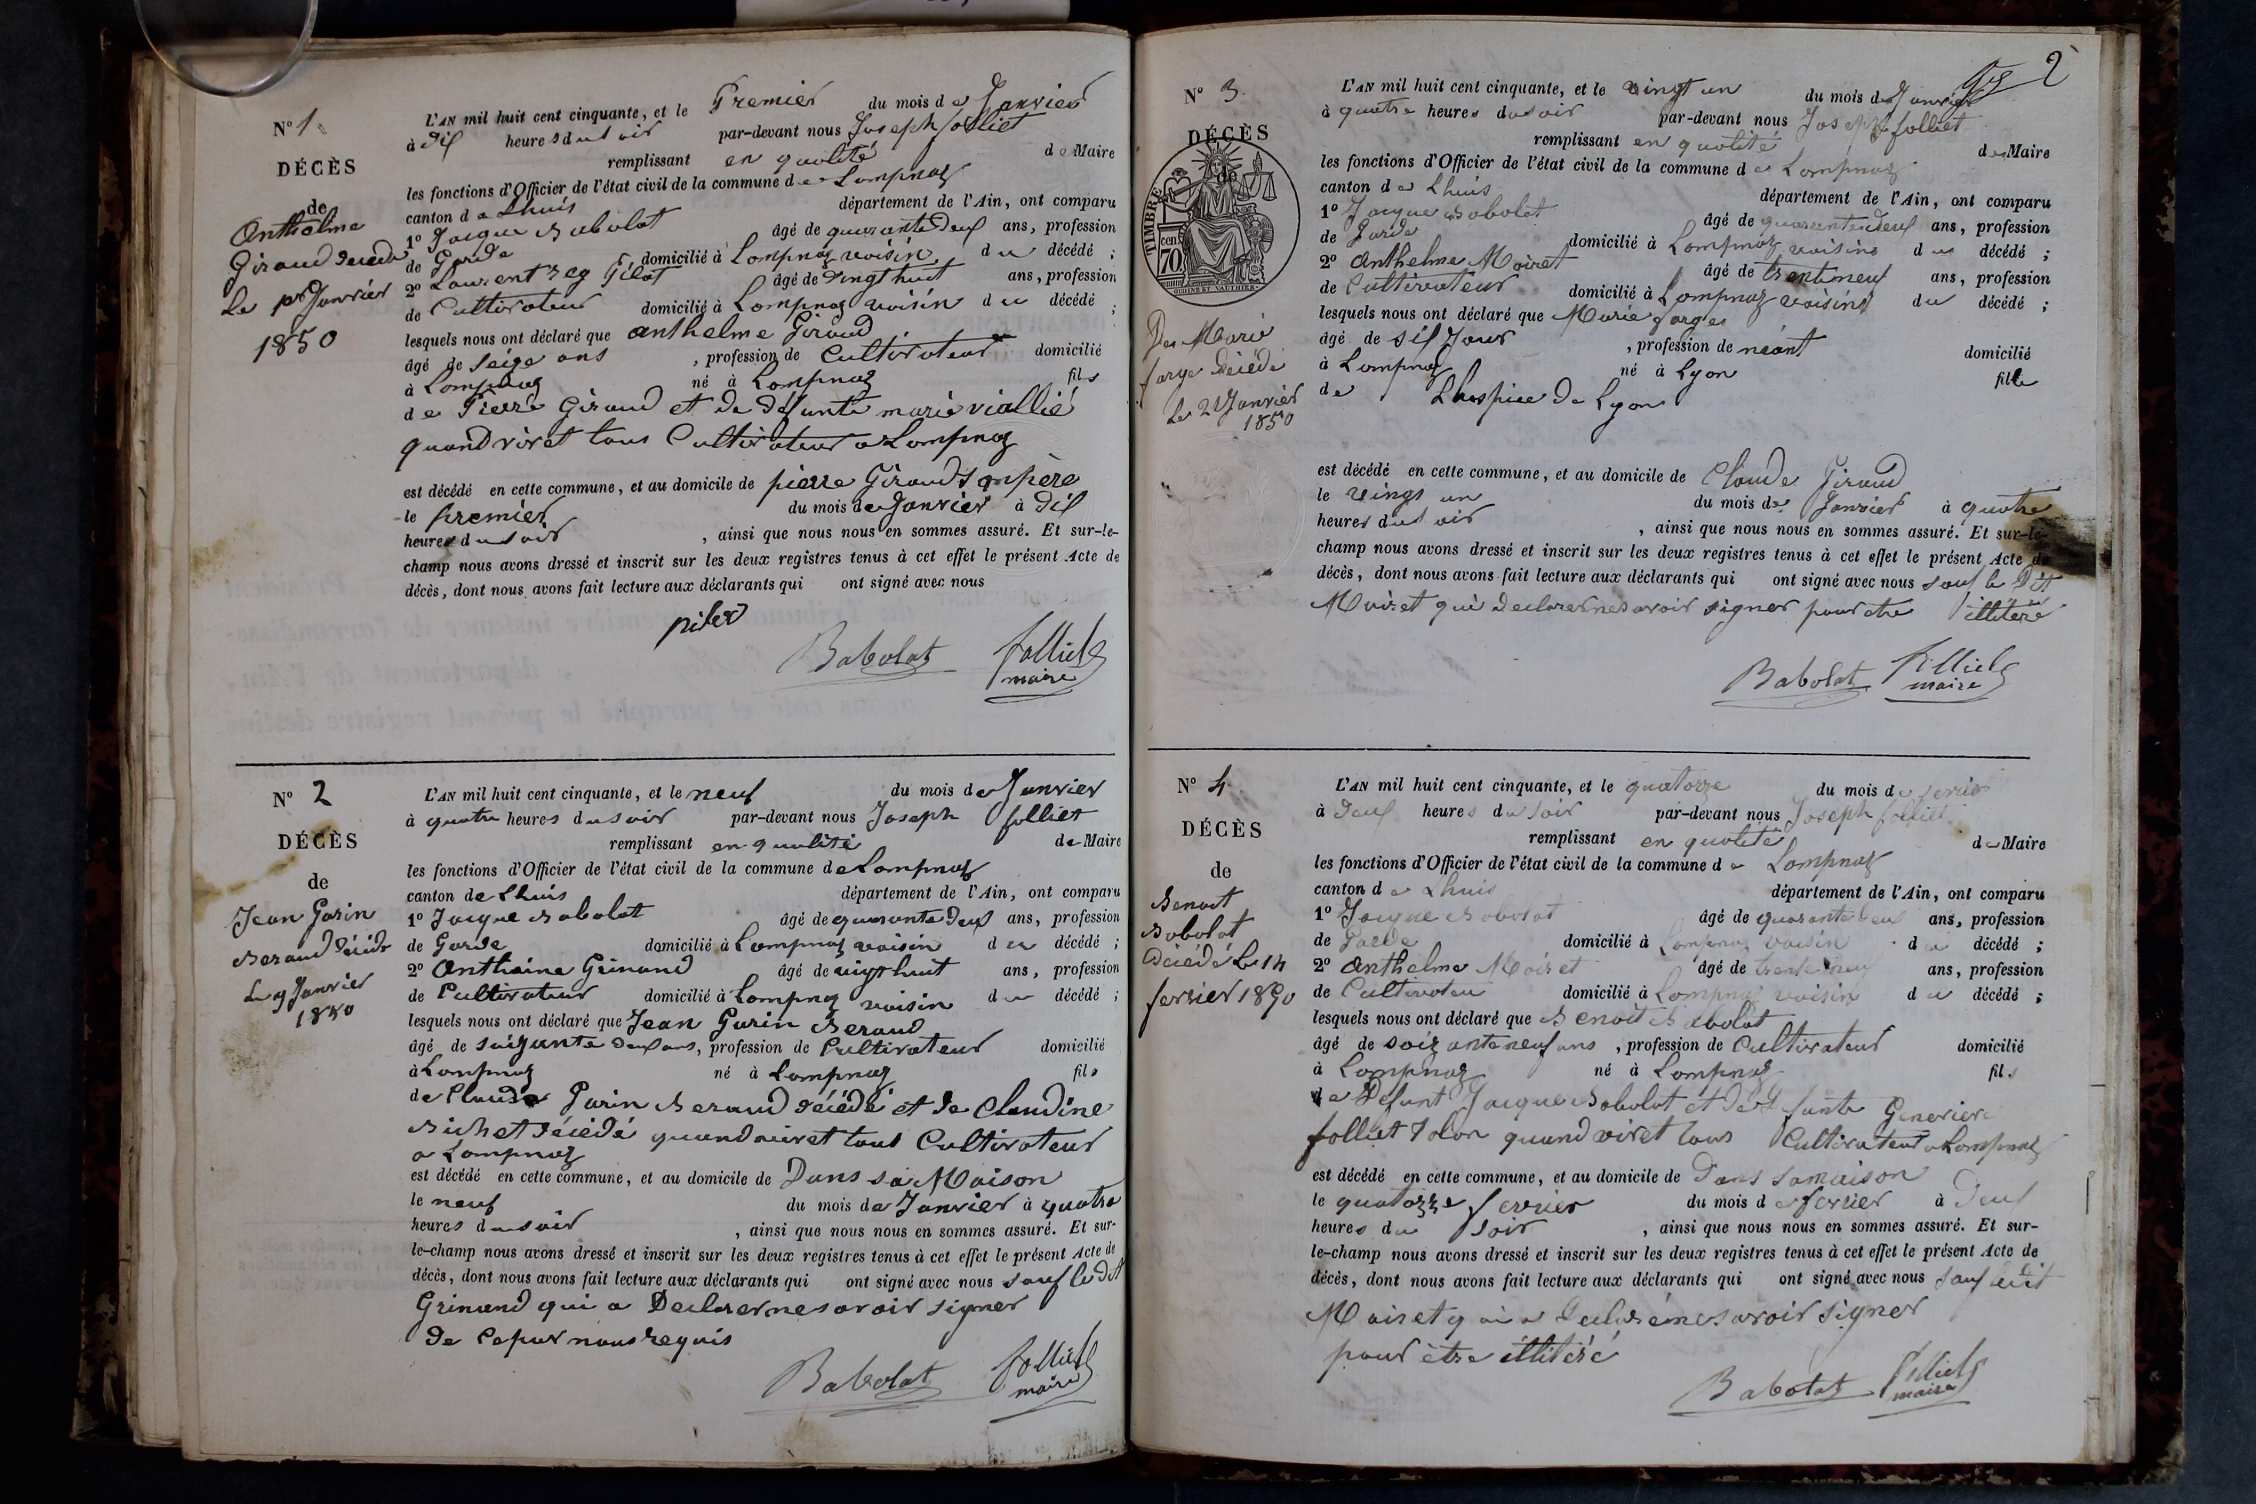 N° 1
DÉCÈS
de
Anthelme
Giraud décédé
Le 1er Janvier
1850
L'AN mil huit cent cinquante, et le Premier du mois de Janvier
à dix heures du soir par-devant nous Joseph folliet
remplissant en qualité de Maire
les fonctions d'Officier de l'état civil de la commune de Lompnaz
canton de Lhuis département de l'Ain, ont comparu
1° Jacque Babolat âgé de quarante deux ans, profession
de Garde domicilié à Lompnaz voisin du décédé ;
2° Laurent rey Pilat âgé de vingt huit ans, profession
de Cultivateur domicilié à Lompnaz voisin du décédé ;
lesquels nous ont déclaré que anthelme Giraud
âgé de seize ans , profession de Cultivateur domicilié
à Lompnaz né à Lompnaz fils
de Pierre Giraud et de défunte marie viallié
quand vivet tous Cultivateur a Lompnaz
est décédé en cette commune, et au domicile de pierre Giraud son père
le premier du mois de Janvier à dix
heures du soir , ainsi que nous nous en sommes assuré. Et sur-le-
champ nous avons dressé et inscrit sur les deux registres tenus à cet effet le présent Acte de
décès, dont nous avons fait lecture aux déclarants qui ont signé avec nous
Babolat folliet
maire
N° 2
DÉCÈS
de
Jean Garin
Beraud décédé
Le 9 Janvier
1850
L'AN mil huit cent cinquante, et le neuf du mois de Janvier
à quatre heures du soir par-devant nous Joseph folliet
remplissant en qualité de Maire
les fonctions d'Officier de l'état civil de la commune de Lompnaz
canton de Lhuis département de l'Ain, ont comparu
1° Jacque Babolat âgé de quarante deux ans, profession
de Garde domicilié à Lompnaz voisin du décédé ;
2° Grinand âgé de vingt huit ans, profession
de Cultivateur domicilié à Lompnaz voisin du décédé ;
lesquels nous ont déclaré que Jean Garin Beraud
âgé de soixante deux ans, profession de Cultivateur domicilié
à Lompnaz né à Lompnaz fils
de Claude Garin Beraud décédé et de Claudine
Bichet décédé quand vivet tous Cultivateur
a Lompnaz
est décédé en cette commune, et au domicile de Dans sa Maison
le neuf du mois de Janvier à quatre
heures du soir , ainsi que nous nous en sommes assuré. Et sur-
le-champ nous avons dressé et inscrit sur les deux registres tenus à cet effet le présent Acte de
décès, dont nous avons fait lecture aux déclarants qui ont signé avec nous sauf le dit
Grinand qui a Declarer ne savoir signer
de ce par nous requis
Babolat folliet
maire
2
N° 3
DÉCÈS
de
TIMBRE
70 cent.
De Marie
farge décédé
Le 21 Janvier
1850
L'AN mil huit cent cinquante, et le vingt un du mois de Janvier
à quatre heures du soir par-devant nous Joseph folliet
remplissant en qualité de Maire
les fonctions d'Officier de l'état civil de la commune de Lompnaz
canton de Lhuis département de l'Ain, ont comparu
1° Jacque Babolat âgé de quarante deux ans, profession
de Garde domicilié à Lompnaz voisins du décédé ;
2° Anthelme Moiret âgé de trente neuf ans, profession
de Cultivateur domicilié à Lompnaz voisins du décédé ;
lesquels nous ont déclaré que Marie farges
âgé de six Jour , profession de néant domicilié
à Lompnaz né à Lyon fille
de Lhospice de Lyon
est décédé en cette commune, et au domicile de Claude Giraud
le vingt un du mois de Janvier à quatre
heures du soir , ainsi que nous nous en sommes assuré. Et sur-le-
champ nous avons dressé et inscrit sur les deux registres tenus à cet effet le présent Acte de
décès, dont nous avons fait lecture aux déclarants qui ont signé avec nous sauf le Dit
Moiret qui declarer ne savoir signer pour etre illiteré
Babolat folliet
maire
N° 4
DÉCÈS
de
Benoit
Babolat
décédé Le 14
fevrier 1850
L'AN mil huit cent cinquante, et le quatorze du mois de fevrier
à deux heures du soir par-devant nous Joseph folliet
remplissant en qualité de Maire
les fonctions d'Officier de l'état civil de la commune de Lompnaz
canton de Lhuis département de l'Ain, ont comparu
1° Jacque Babolat âgé de quarante deux ans, profession
de Garde domicilié à Lompnaz voisin du décédé ;
2° Anthelme Moiret âgé de trente neuf ans, profession
de Cultivateur domicilié à Lompnaz voisin du décédé ;
lesquels nous ont déclaré que Benoit Babolat
âgé de soixante neuf ans , profession de Cultivateur domicilié
à Lompnaz né à Lompnaz fils
de Défunt Jacque Babolat et de défunte Genevieve
folliet quand vivet tous Cultivateur a Lompnaz
est décédé en cette commune, et au domicile de Dans sa maison
le quatorze fevrier du mois de fevrier à Deux
heures du soir , ainsi que nous nous en sommes assuré. Et sur-
le-champ nous avons dressé et inscrit sur les deux registres tenus à cet effet le présent Acte de
décès, dont nous avons fait lecture aux déclarants qui ont signé avec nous sauf ledit
Moiret qui a Declaré ne savoir signer
pour être illitéré
Babolat folliet
maire